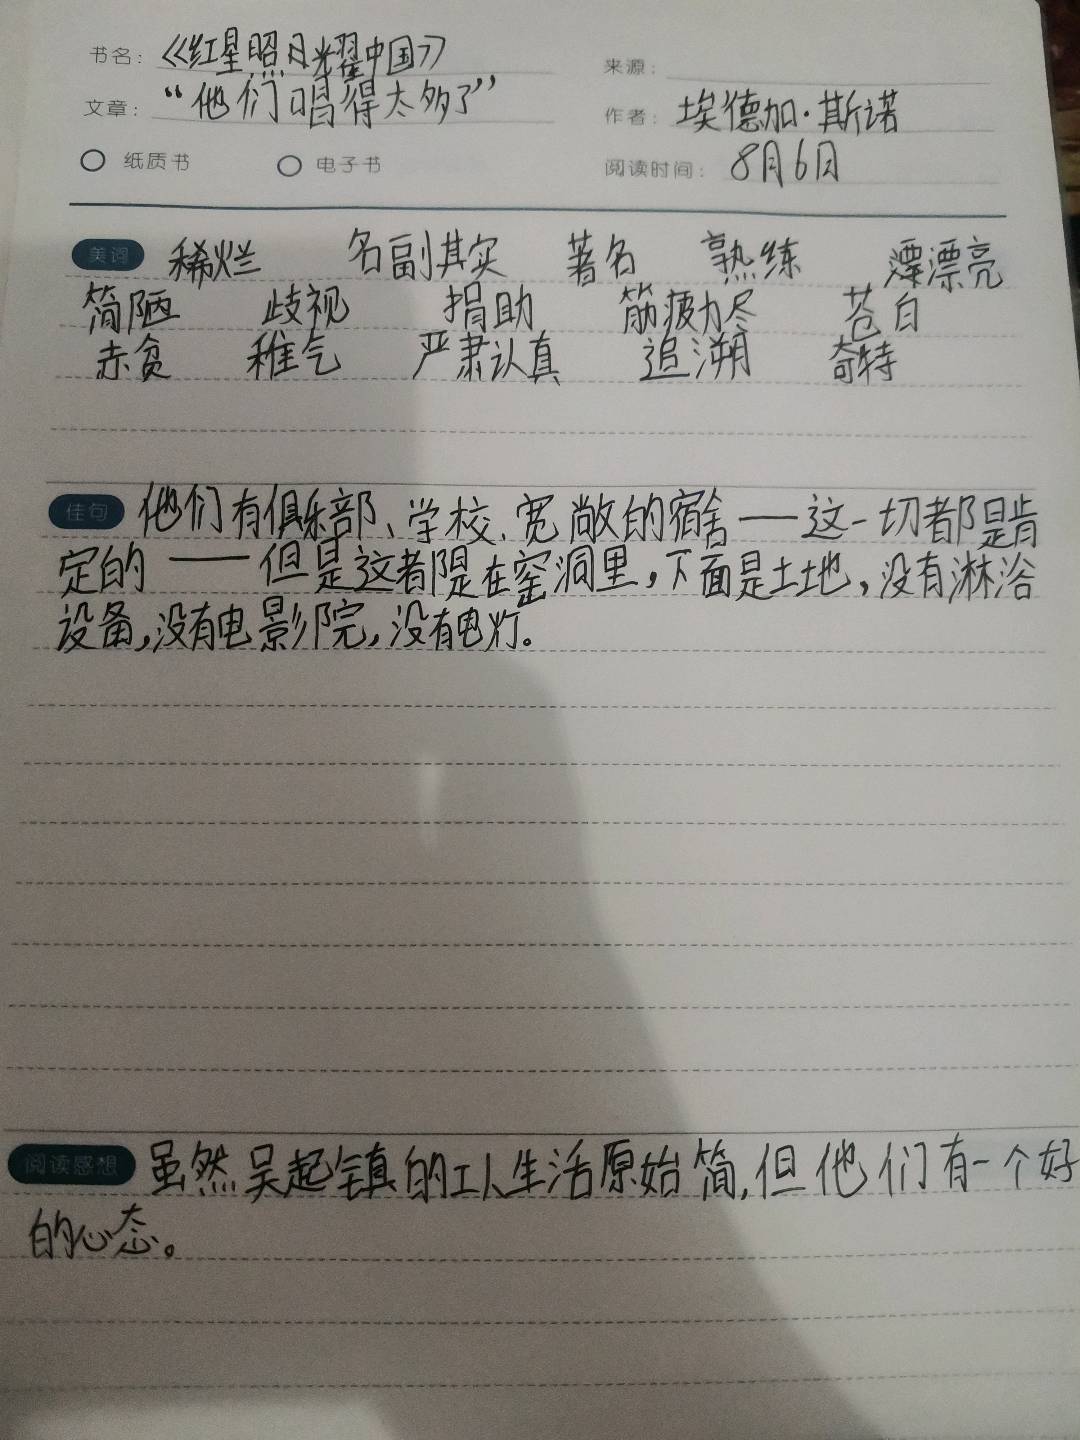 书名：《红星照月光耀中国》 来源：
文章：“他们唱得太多了” 作者：埃德加·斯诺
纸质书 电子书 阅读时间：8月6日
美词 稀烂 名副其实 著名 熟练 漂漂亮
简陋 歧视 捐助 筋疲力尽 苍白
赤贫 稚气 严肃认真 追溯 奇特
佳句 他们有俱乐部、学校、宽敞的宿舍——这一切都是肯
定的——但是这都是在窑洞里，下面是土地，没有淋浴
设备，没有电影院，没有电灯。
阅读感想 虽然吴起镇的工人生活原始简，但他们有一个好
的心态。